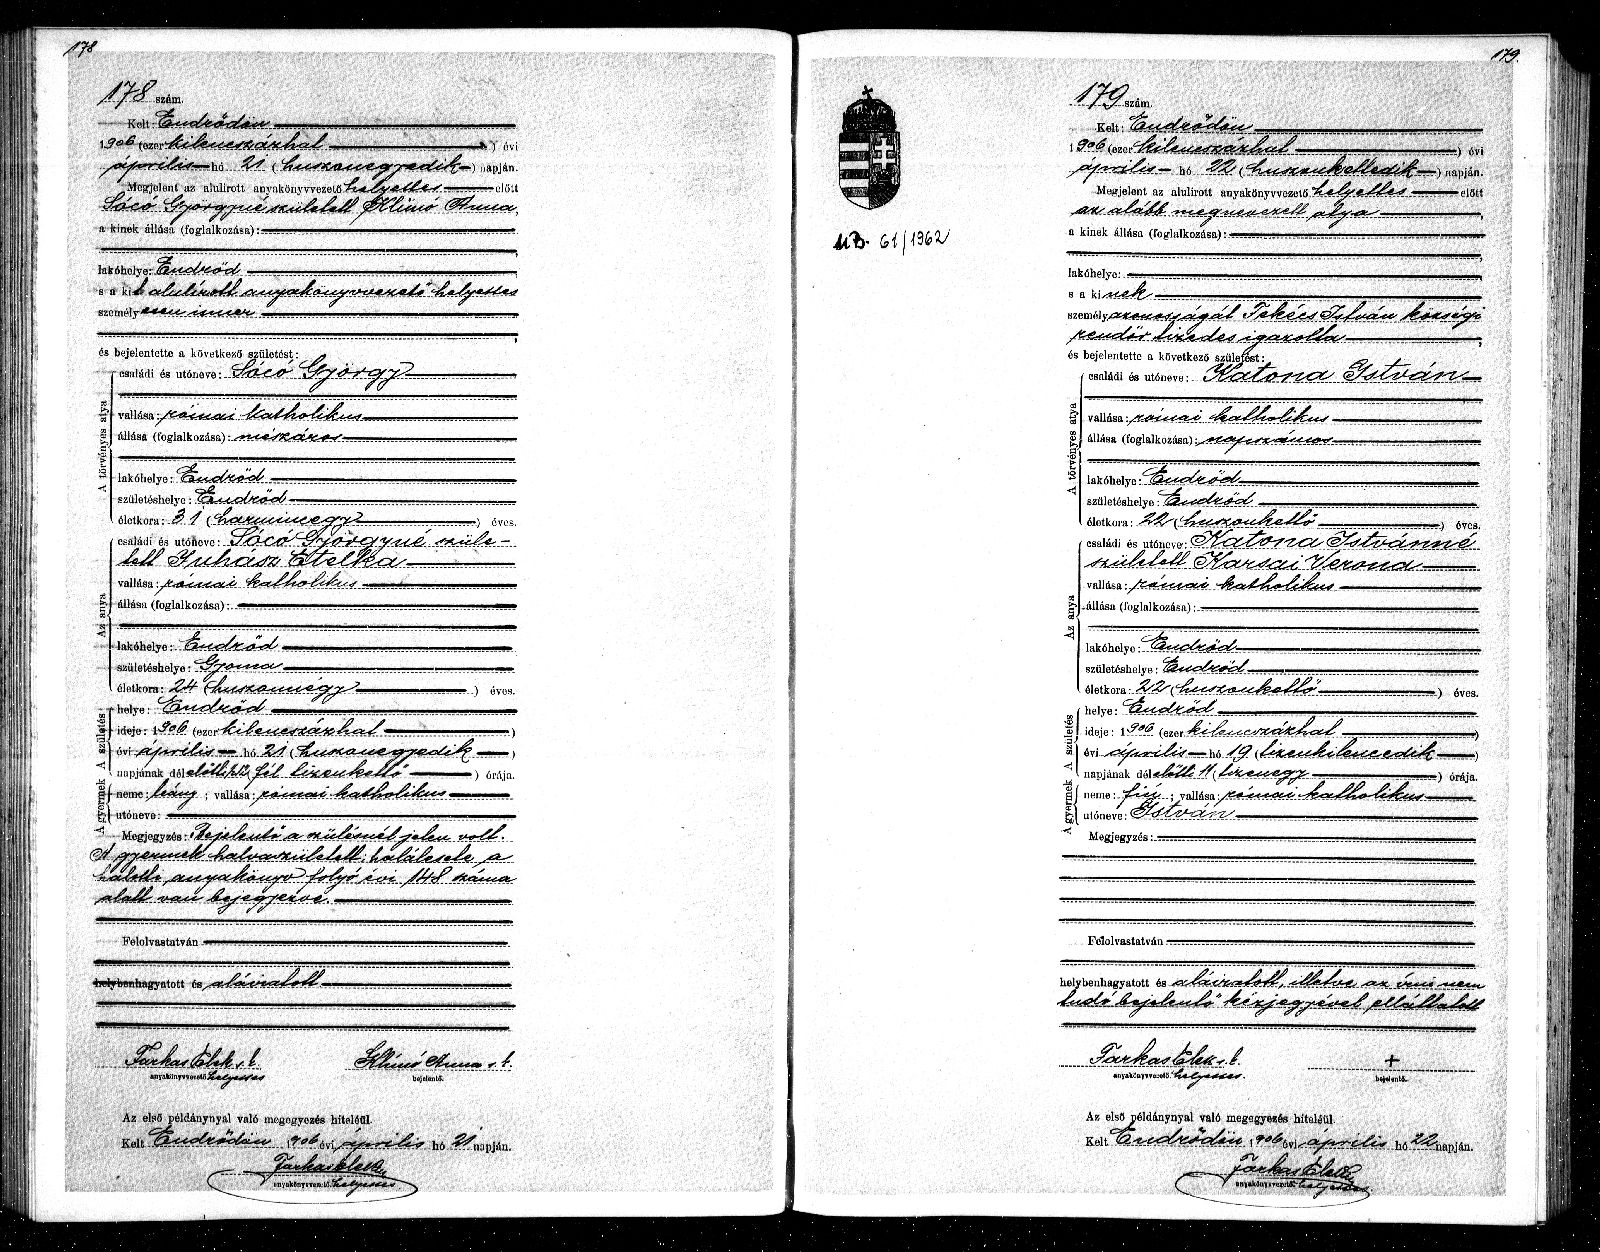 178
178 szám.
Kelt: Endrődön
1906 (ezer kilencszázhat ) évi
április hó 21 (huszonegyedik ) napján.
Megjelent az alulirott anyakönyvvezető helyettes előtt
Sócó Györgyné született Klimó Anna,
a kinek állása (foglalkozása):
lakóhelye: Endrőd
s a kit alulírott anyakönyvvezető helyettes
személyesen ismer
és bejelentette a következő születést:
A törvényes atya
családi és utóneve: Sócó György
vallása: római katholikus
állása (foglalkozása): mészáros
lakóhelye: Endrőd
születéshelye: Endrőd
életkora: 31 (harminczegy ) éves.
Az anya
családi és utóneve: Sócó Györgyné szüle-
tett Juhász Etelka
vallása: római katholikus
állása (foglalkozása):
lakóhelye: Endrőd
születéshelye: Gyoma
életkora: 24 (huszonnégy ) éves.
A gyermek A születés
helye: Endrőd
ideje: 1906 (ezer kilencszázhat )
évi április hó 21 (huszonegyedik )
napjának délelőtti ½12 (fél tizenkettő ) órája.
neme: leány; vallása: római katholikus
utóneve:
Megjegyzés: Bejelentő a szülésnél jelen volt.
A gyermek halvaszületett; halálesete a
halotti anyakönyv folyó évi 148 száma
alatt van bejegyezve.
Felolvastatván
helybenhagyatott és aláiratott
Farkas Elek s.k. Klimó Anna s.k.
anyakönyvvezető helyettes bejelentő.
Az első példánynyal való megegyezés hiteléül.
Kelt Endrődön 1906 évi április hó 21 napján.
Farkas Elek
anyakönyvvezető helyettes
M.B. 61/1962
179.
179 szám.
Kelt: Endrődön
1906 (ezer kilencszázhat ) évi
április hó 22 (huszonkettedik ) napján.
Megjelent az alulirott anyakönyvvezető helyettes előtt
az alább megnevezett atya
a kinek állása (foglalkozása):
lakóhelye:
s a kinek
személyazonosságát Tekécs István községi
rendőr tizedes igazolta
és bejelentette a következő születést:
A törvényes atya
családi és utóneve: Katona István
vallása: római katholikus
állása (foglalkozása): napszámos
lakóhelye: Endrőd
születéshelye: Endrőd
életkora: 22 (huszonkettő ) éves.
Az anya
családi és utóneve: Katona Istvánné
született Karsai Verona
vallása: római katholikus
állása (foglalkozása):
lakóhelye: Endrőd
születéshelye: Endrőd
életkora: 22 (huszonkettő ) éves.
A gyermek A születés
helye: Endrőd
ideje: 1906 (ezer kilencszázhat )
évi április hó 19 (tizenkilencedik )
napjának délelőtti 11 (tizenegy ) órája.
neme: fiú; vallása: római katholikus
utóneve: István
Megjegyzés:
Felolvastatván
helybenhagyatott és aláiratott, illetve az írni nem
tudó bejelentő kézjegyével elláttatott
Farkas Elek s.k. +
anyakönyvvezető helyettes. bejelentő.
Az első példánynyal való megegyezés hiteléül.
Kelt Endrődön 1906 évi április hó 22 napján.
Farkas Elek
anyakönyvvezető helyettes